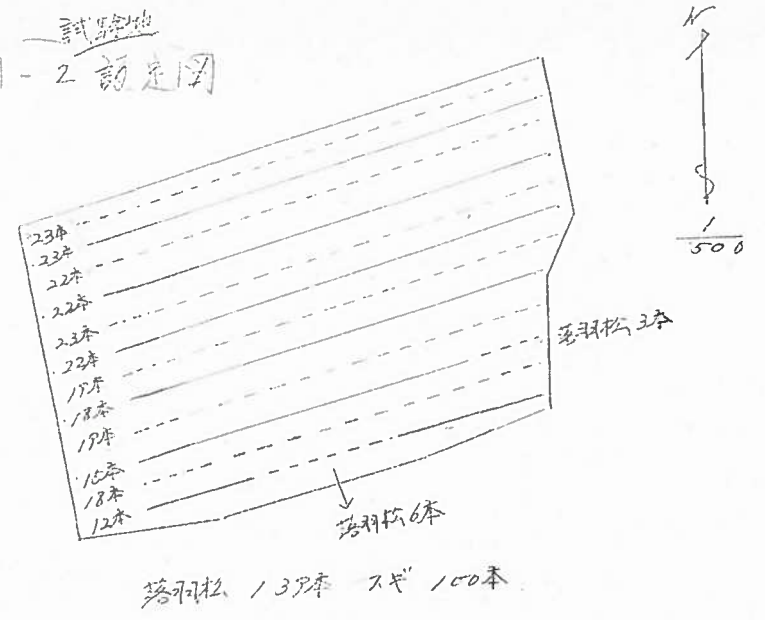 試験地
1-2 設定図
N
1/500
23本
23本
22本
22本
23本
22本
19本
18本
19本
15本
18本
12本
落羽松 3本
落羽松 6本
落羽松 139本 スギ 100本